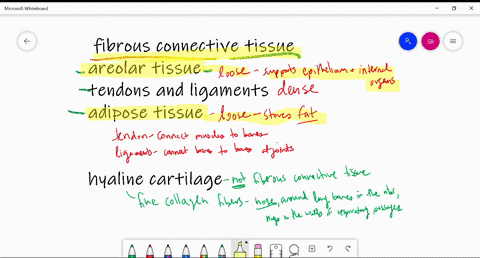 Microsoft Whiteboard
fibrous connective tissue
areolar tissue - loose - supports epithelium + internal organs
tendons and ligaments dense
adipose tissue - loose - stores fat
tendon - connect muscles to bones
ligaments - connect bones to bones at joints
hyaline cartilage - not fibrous connective tissue
fine collagen fibers - nose, around long bones in the ribs,
rings in the walls of respiratory passages